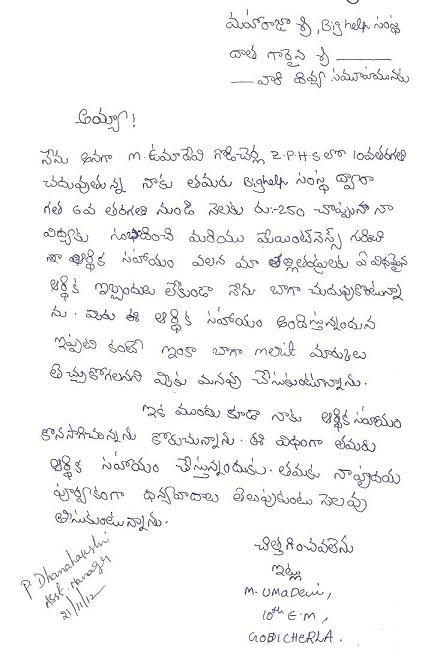 మహారాజా శ్రీ, Big help సంస్థ
దాత గారైన శ్రీ ________
___ వారి దివ్య సముఖమునకు
అయ్యా!
నేను అనగా M. ఉమాదేవి గొబిచెర్ల Z.P.H.S లో 10వతరగతి
చదువుతున్న నాకు తమరు Bighelp సంస్థ ద్వారా
గత 6వ తరగతి నుండి నెలకు రు:-250 చొప్పున నా
విద్యకు సంబంధించి మరియు మెయింటెనెన్స్ గురించి
ఆర్థిక సహాయం వలన మా తల్లితండ్రులకు ఏ విధమైన
ఆర్థిక ఇబ్బందులు లేకుండా నేను బాగా చదువుకొంటున్నా
ను. మీరు ఈ ఆర్థిక సహాయం అందిస్తున్నందున
ఇప్పటి కంటే ఇంకా బాగా merit మార్కులు
తెచ్చుకోగలనని మీకు మనవు చేసుకుంటున్నాను.
ఇక ముందు కూడా నాకు ఆర్థిక సహాయం
కొనసాగిచున్నాను కోరుచున్నాను. ఈ విధంగా తమరు
ఆర్థిక సహాయం చేస్తున్నందుకు. తమకు నా హృదయ
పూర్వకంగా ధన్యవాదాలు తెలుపుకుంటు సెలవు
తీసుకుంటున్నాను.
చిత్తగించవలెను
ఇట్లు
M. UMADevi,
10th E.M,
GOBICHERLA.
P. Dhanalakshmi
Asst. Manager
21/11/12